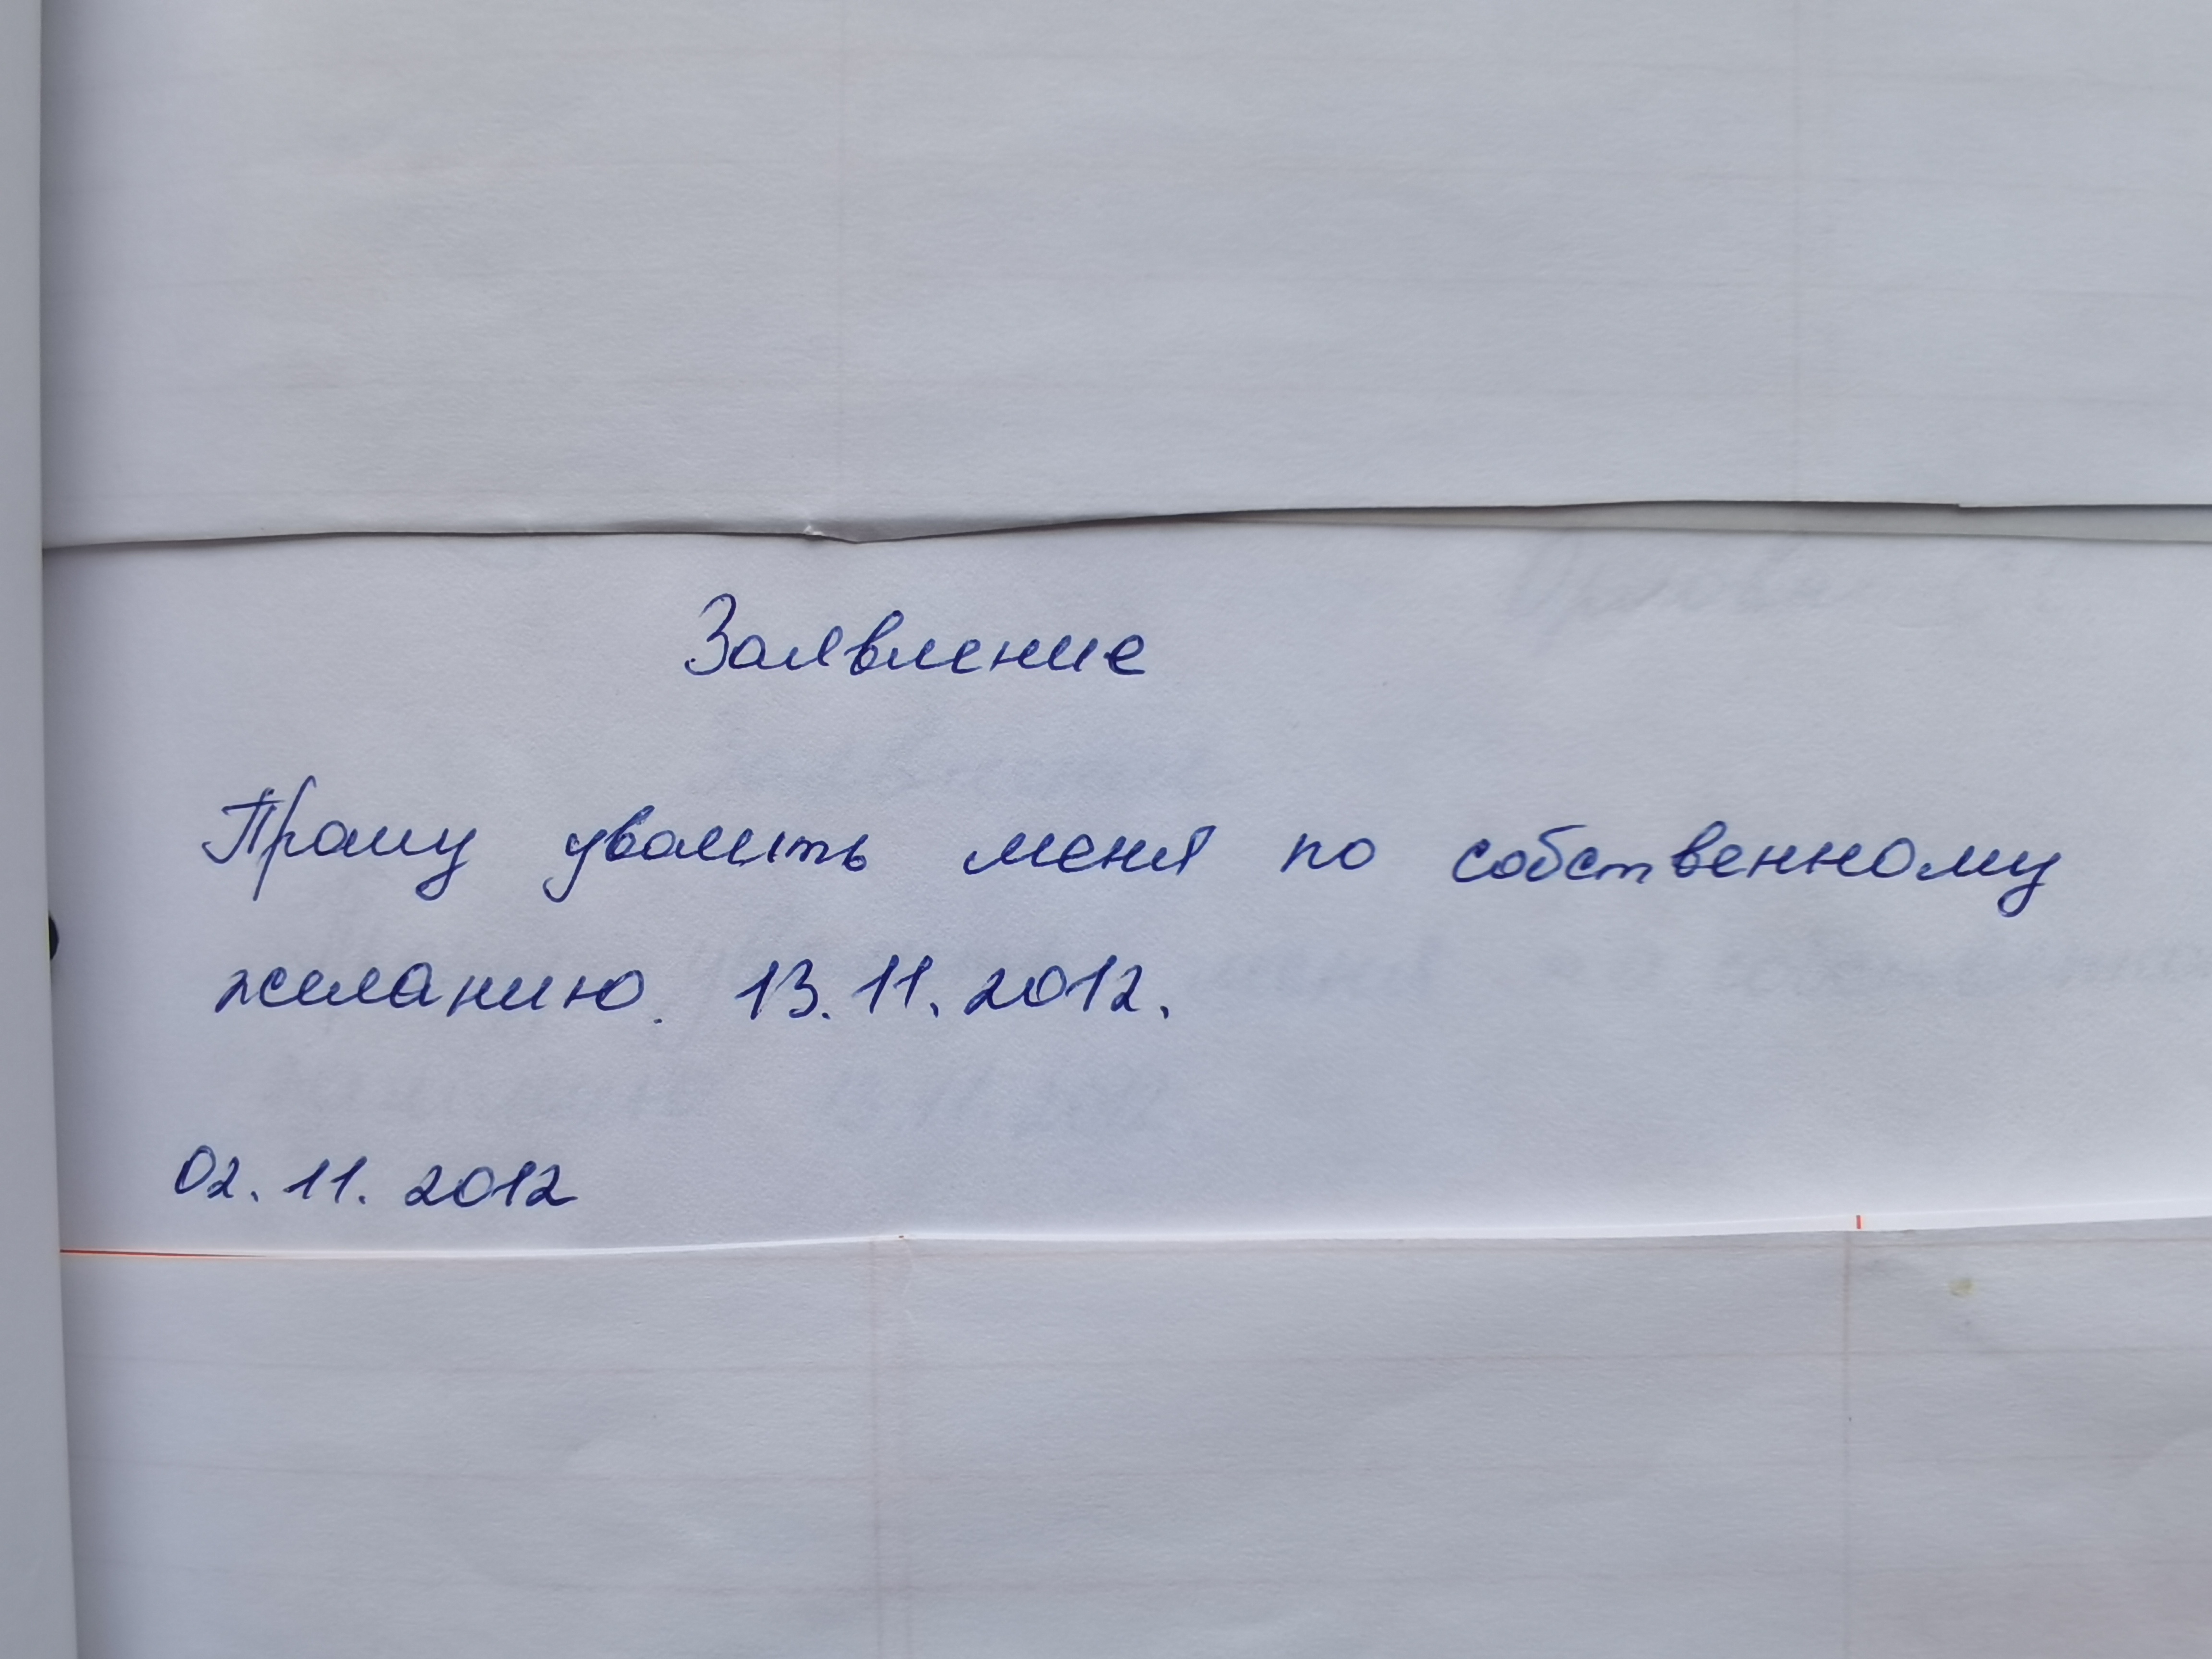 Заявление
Прошу уволить меня по собственному
желанию. 13.11.2012.
02.11.2012